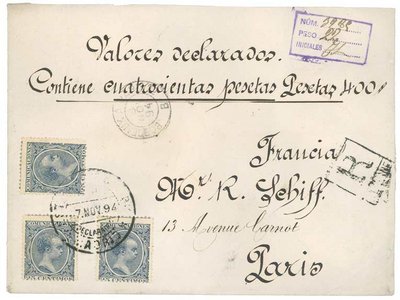 NÚM.
PESO
INICIALES
Valores declarados.
Contiene cuatrocientas pesetas Pesetas 400
Francia
Mr. R. Schiff.
13 Avenue Carnot
Paris
R
7 NOV. 94